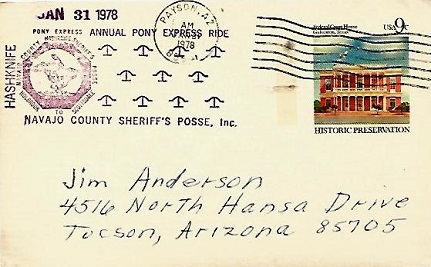 JAN 31 1978
PONY EXPRESS ANNUAL PONY EXPRESS RIDE
HASHKNIFE
TO
NAVAJO COUNTY SHERIFF'S POSSE, Inc.
PAYSON, AZ
AM
1978
Federal Court House
Galveston, Texas
USA 9c
HISTORIC PRESERVATION
Jim Anderson
4516 North Hansa Drive
Tucson, Arizona 85705